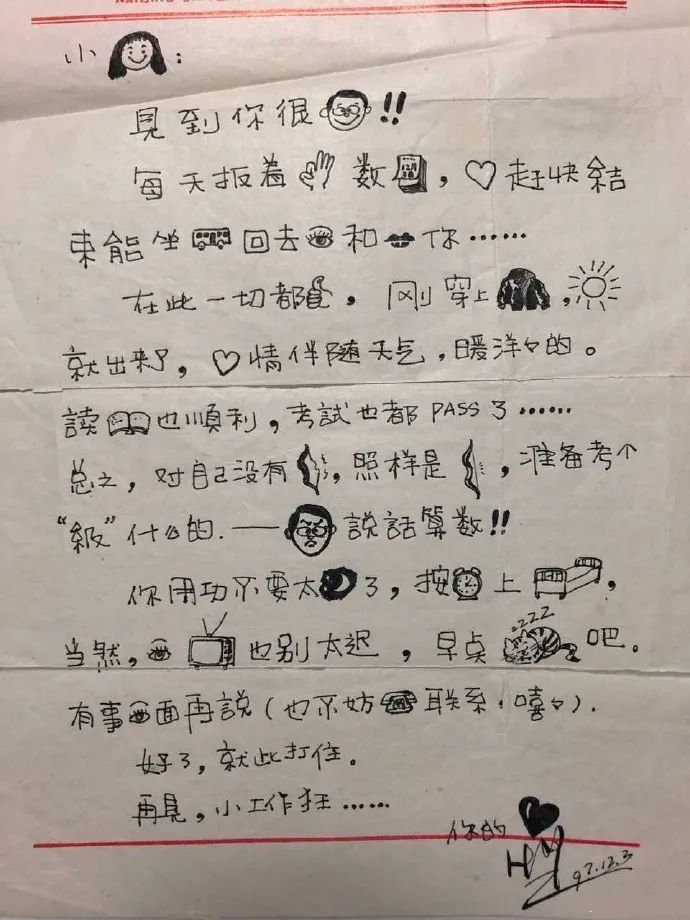 小：
見到你很!!
每天扳着数，♡赶快結
束能坐回去和你……
在此一切都，刚穿上，
就出来了，♡情伴随天气，暖洋々的。
讀也順利，考試也都PASS了……
总之，对自己没有，照样是，准备考个
“級”什么的.——説話算数!!
你用功不要太了，按上，
当然，也别太迟，早点吧。
有事面再説（也不妨联系，嘻々）.
好了，就此打住。
再見，小工作狂……
你的
97.12.3